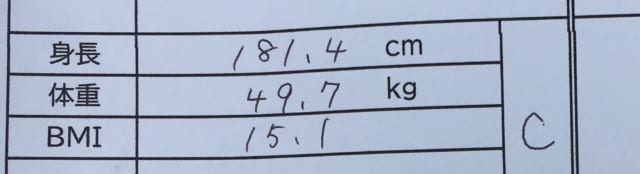 身長 181.4 cm
体重 49.7 kg
BMI 15.1 C